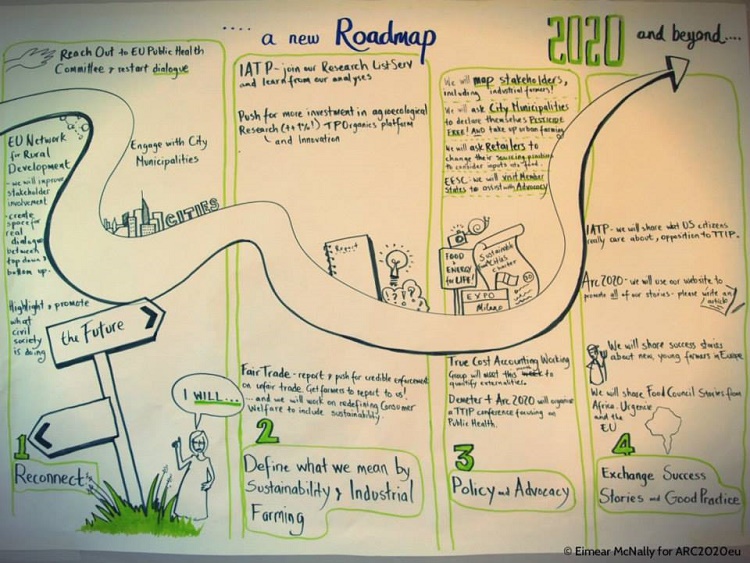 .... a new Roadmap
2020 and beyond....
Reach Out to EU Public Health
Committee & restart dialogue
EU Network
for Rural
Development
- we will improve
stakeholder
involvement
- create
space for
real
dialogue
between
top down &
bottom up.
Engage with City
Municipalities
CITIES
Highlight & promote
what
civil
society
is doing
the Future
I WILL...
1
Reconnect
IATP - join our Research ListServ
and learn from our analyses
Push for more investment in agroecological
Research (++%!) TP Organics platform
and Innovation
Report
Fair Trade - report & push for credible enforcement
on unfair trade. Get farmers to report to us!
... and we will work on redefining Consumer
Welfare to include sustainability.
2
Define what we mean by
Sustainability & Industrial
Farming
We will map stakeholders,
including industrial farmers!
We will ask City Municipalities
to declare themselves PESTICIDE
FREE! AND take up urban farming
We will ask Retailers to
change their sourcing practices
to consider inputs into food.
EESC - we will visit Member
States to assist with Advocacy
FOOD
+
ENERGY
for LIFE!
Sustainable
Cities
Charter
EXPO
Milano
True Cost Accounting Working
Group will meet this week to
quantify externalities.
Demeter + Arc 2020 will organise
a TTIP conference focusing on
Public Health.
3
Policy and Advocacy
IATP - we will share what US citizens
really care about, opposition to TTIP.
Arc 2020 - we will use our website to
promote all of our stories - please write an
article!
We will share success stories
about new, young farmers in Europe
We will share Food Council Stories from
Africa. Urgencie
and the
EU
4
Exchange Success
Stories and Good Practice
© Eimear McNally for ARC2020eu